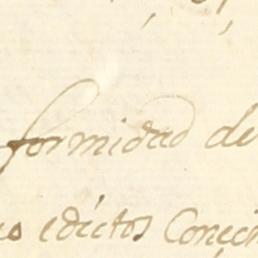 formidad de
edictos Coneç